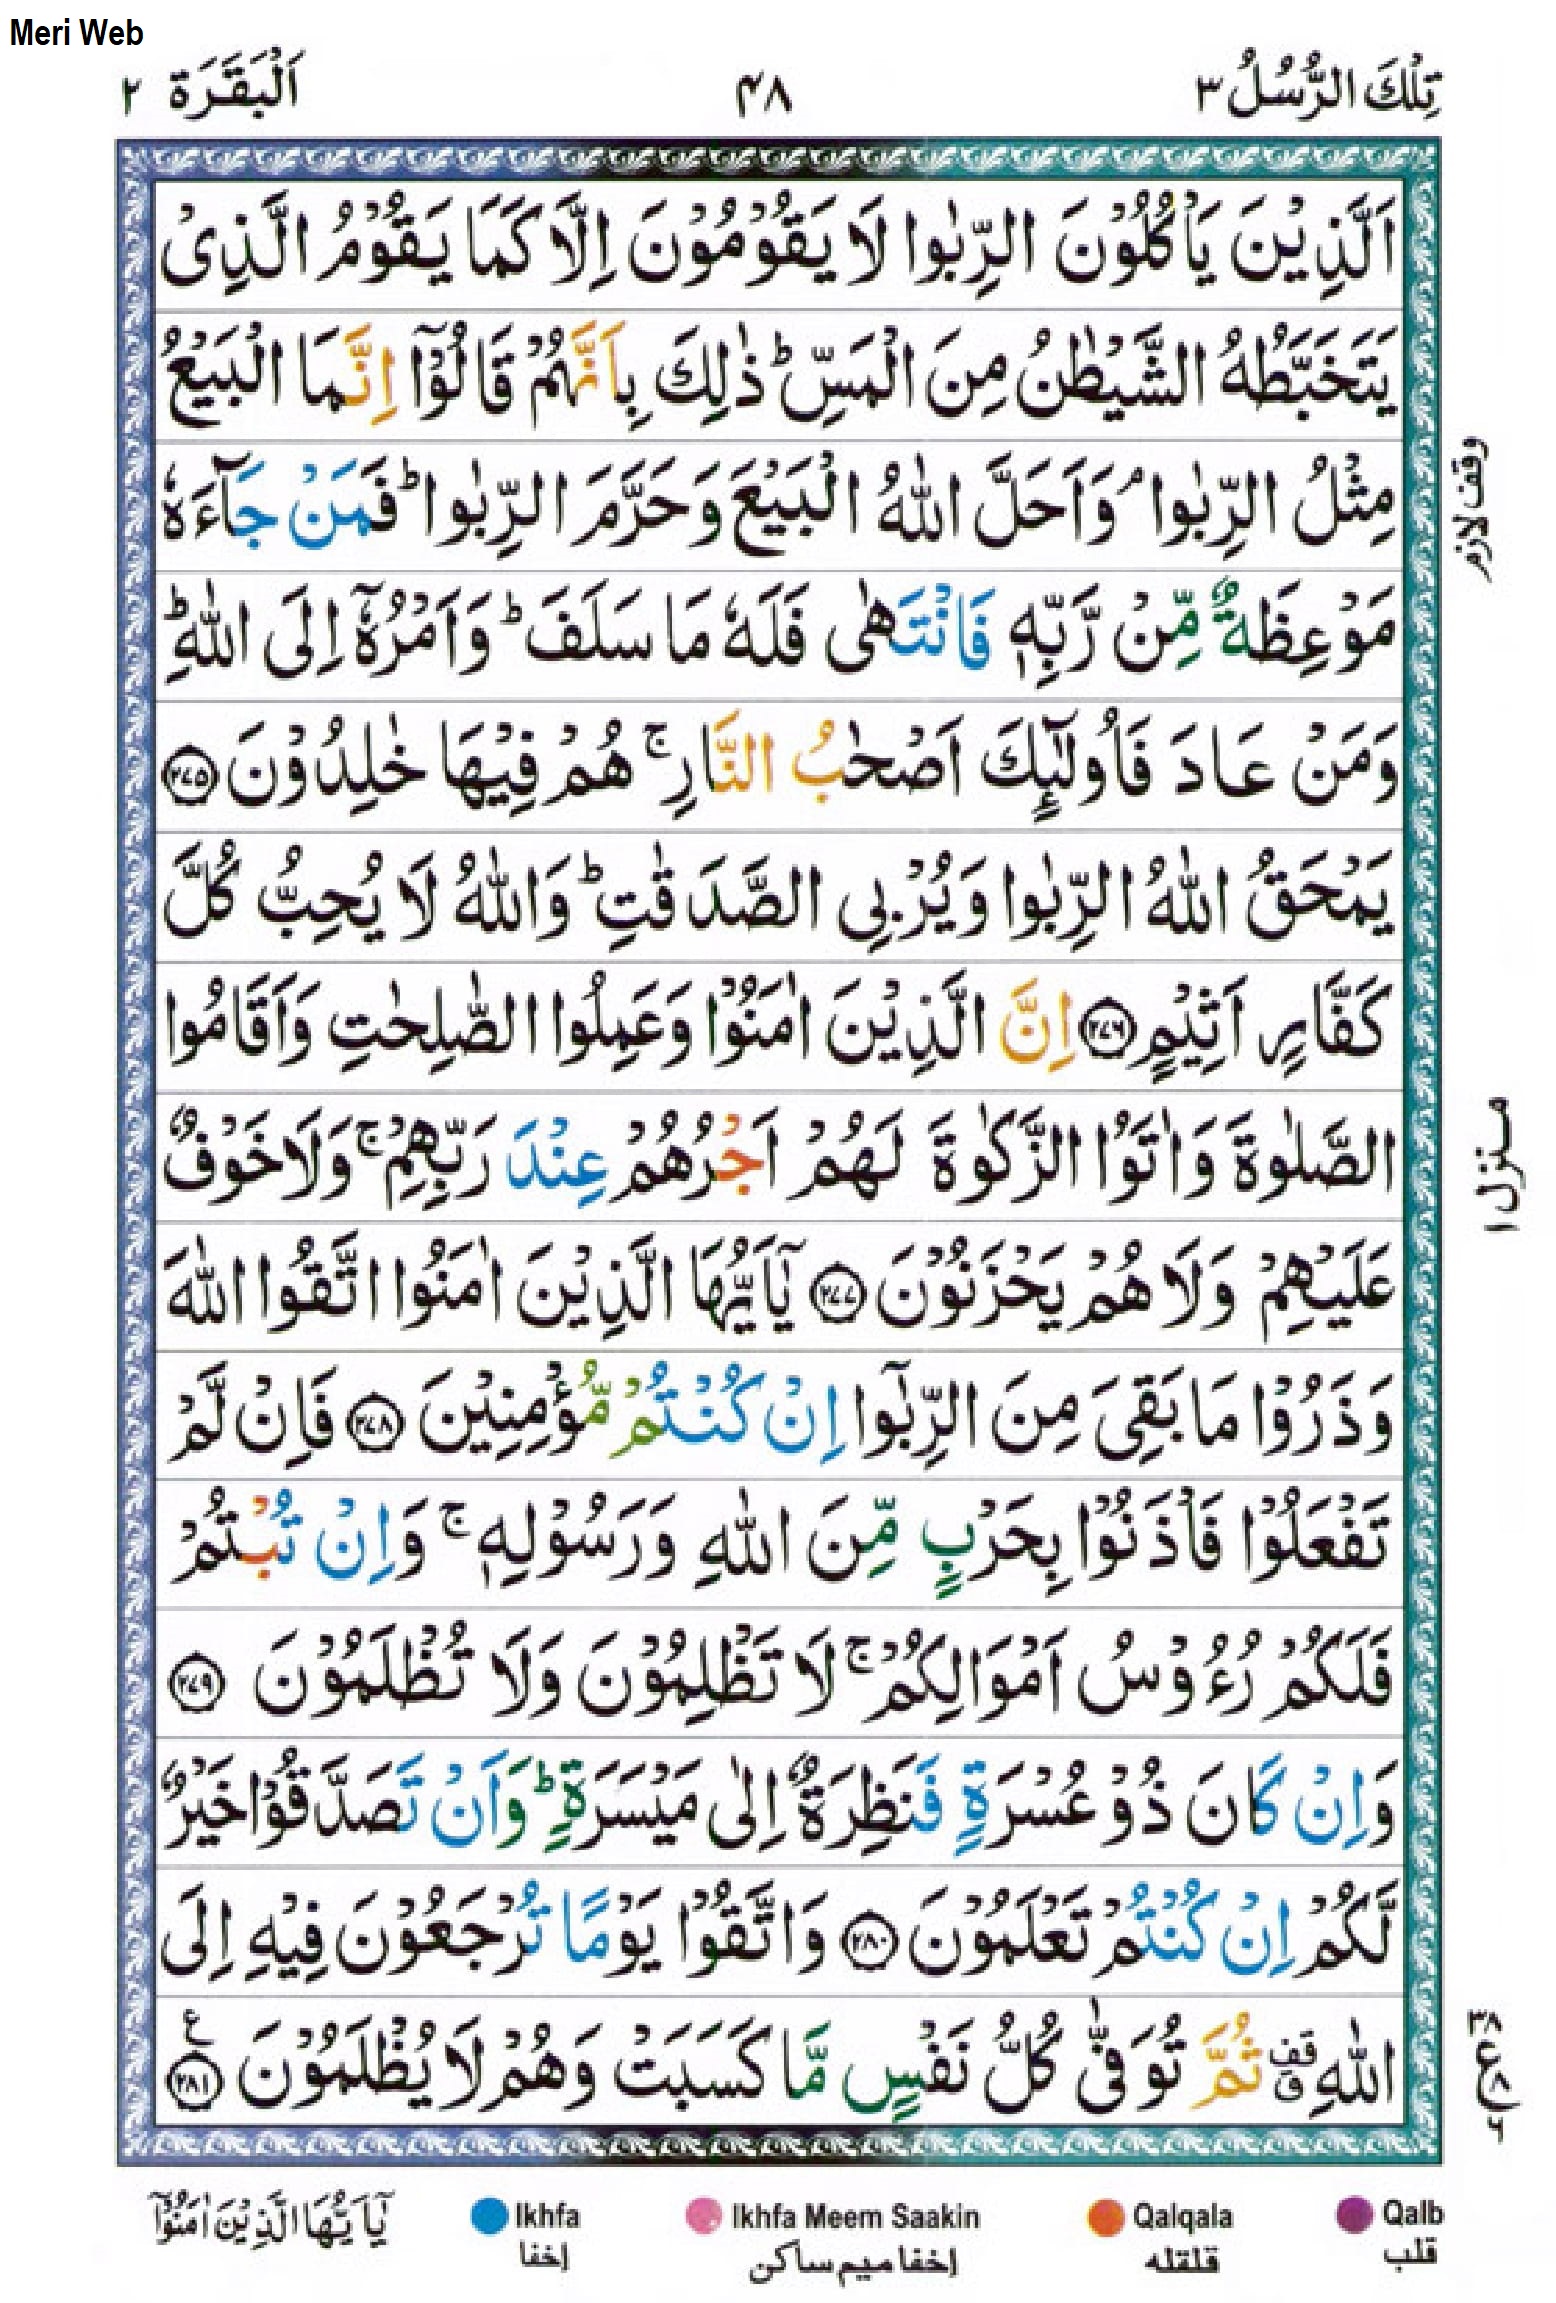 Meri Web
تِلْكَ الرُّسُلُ ٣
۴۸
اَلْبَقَرَة ٢
اَلَّذِيْنَ يَاْكُلُوْنَ الرِّبٰوا لَا يَقُوْمُوْنَ اِلَّا كَمَا يَقُوْمُ الَّذِىْ
يَتَخَبَّطُهُ الشَّيْطٰنُ مِنَ الْمَسِّ ؕ ذٰلِكَ بِاَنَّهُمْ قَالُوْۤا اِنَّمَا الْبَيْعُ
مِثْلُ الرِّبٰوا ۘ وَاَحَلَّ اللّٰهُ الْبَيْعَ وَحَرَّمَ الرِّبٰوا ؕ فَمَنْ جَآءَهٗ
وقف لازم
مَوْعِظَةٌ مِّنْ رَّبِّهٖ فَانْتَهٰى فَلَهٗ مَا سَلَفَ ؕ وَاَمْرُهٗۤ اِلَى اللّٰهِ ؕ
وَمَنْ عَادَ فَاُولٰٓئِكَ اَصْحٰبُ النَّارِ ۚ هُمْ فِيْهَا خٰلِدُوْنَ ﴿۲۷۵﴾
يَمْحَقُ اللّٰهُ الرِّبٰوا وَيُرْبِى الصَّدَقٰتِ ؕ وَاللّٰهُ لَا يُحِبُّ كُلَّ
كَفَّارٍ اَثِيْمٍ ﴿۲۷۶﴾ اِنَّ الَّذِيْنَ اٰمَنُوْا وَعَمِلُوا الصّٰلِحٰتِ وَاَقَامُوا
الصَّلٰوةَ وَاٰتَوُا الزَّكٰوةَ لَهُمْ اَجْرُهُمْ عِنْدَ رَبِّهِمْ ۚ وَلَا خَوْفٌ
منزل ١
عَلَيْهِمْ وَلَا هُمْ يَحْزَنُوْنَ ﴿۲۷۷﴾ يٰۤاَيُّهَا الَّذِيْنَ اٰمَنُوا اتَّقُوا اللّٰهَ
وَذَرُوْا مَا بَقِىَ مِنَ الرِّبٰۤوا اِنْ كُنْتُمْ مُّؤْمِنِيْنَ ﴿۲۷۸﴾ فَاِنْ لَّمْ
تَفْعَلُوْا فَاْذَنُوْا بِحَرْبٍ مِّنَ اللّٰهِ وَرَسُوْلِهٖ ۚ وَاِنْ تُبْتُمْ
فَلَكُمْ رُءُوْسُ اَمْوَالِكُمْ ۚ لَا تَظْلِمُوْنَ وَلَا تُظْلَمُوْنَ ﴿۲۷۹﴾
وَاِنْ كَانَ ذُوْ عُسْرَةٍ فَنَظِرَةٌ اِلٰى مَيْسَرَةٍ ؕ وَاَنْ تَصَدَّقُوْا خَيْرٌ
لَّكُمْ اِنْ كُنْتُمْ تَعْلَمُوْنَ ﴿۲۸۰﴾ وَاتَّقُوْا يَوْمًا تُرْجَعُوْنَ فِيْهِ اِلَى
اللّٰهِ ۗ ثُمَّ تُوَفّٰى كُلُّ نَفْسٍ مَّا كَسَبَتْ وَهُمْ لَا يُظْلَمُوْنَ ﴿۲۸۱﴾ ع
يٰۤاَيُّهَا الَّذِيْنَ اٰمَنُوْۤا
Ikhfa
اخفا
Ikhfa Meem Saakin
اخفا ميم ساكن
Qalqala
قلقله
Qalb
قلب